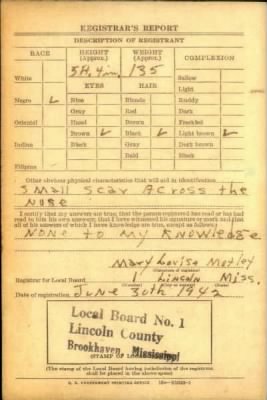 REGISTRAR'S REPORT
DESCRIPTION OF REGISTRANT
RACE HEIGHT (Approx.) WEIGHT (Approx.) COMPLEXION
5ft. 4in. 135
White Sallow
EYES HAIR Light
Negro ✓ Blue Blonde Ruddy
Gray Red Dark
Oriental Hazel Brown Freckled
Brown ✓ Black ✓ Light brown ✓
Indian Black Gray Dark brown
Bald Black
Filipino
Other obvious physical characteristics that will aid in identification
Small Scar Across the
Nose
I certify that my answers are true; that the person registered has read or has had
read to him his own answers; that I have witnessed his signature or mark and that
all of his answers of which I have knowledge are true, except as follows:
None to my Knowledge
Mary Louise
(Signature of registrar)
Registrar for Local Board 1 Lincoln Miss.
Date of registration June 30th 1942
Local Board No. 1
Lincoln County
Brookhaven, Mississippi
(STAMP OF LOCAL
(The stamp of the Local Board having jurisdiction of the registrant
shall be placed in the above space)
U. S. GOVERNMENT PRINTING OFFICE